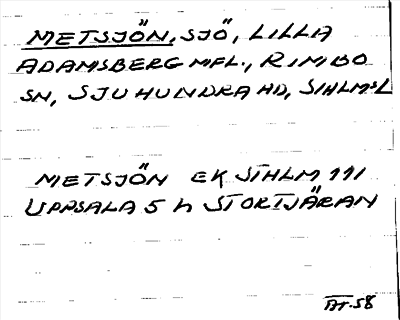 METSJÖN, SJÖ, LILLA
ADAMSBERG MFL., RIMBO
SN, SJUHUNDRA HD, STHLMSL
METSJÖN EK STHLM 111
UPPSALA 5 h STORTJÄRAN
AT-58